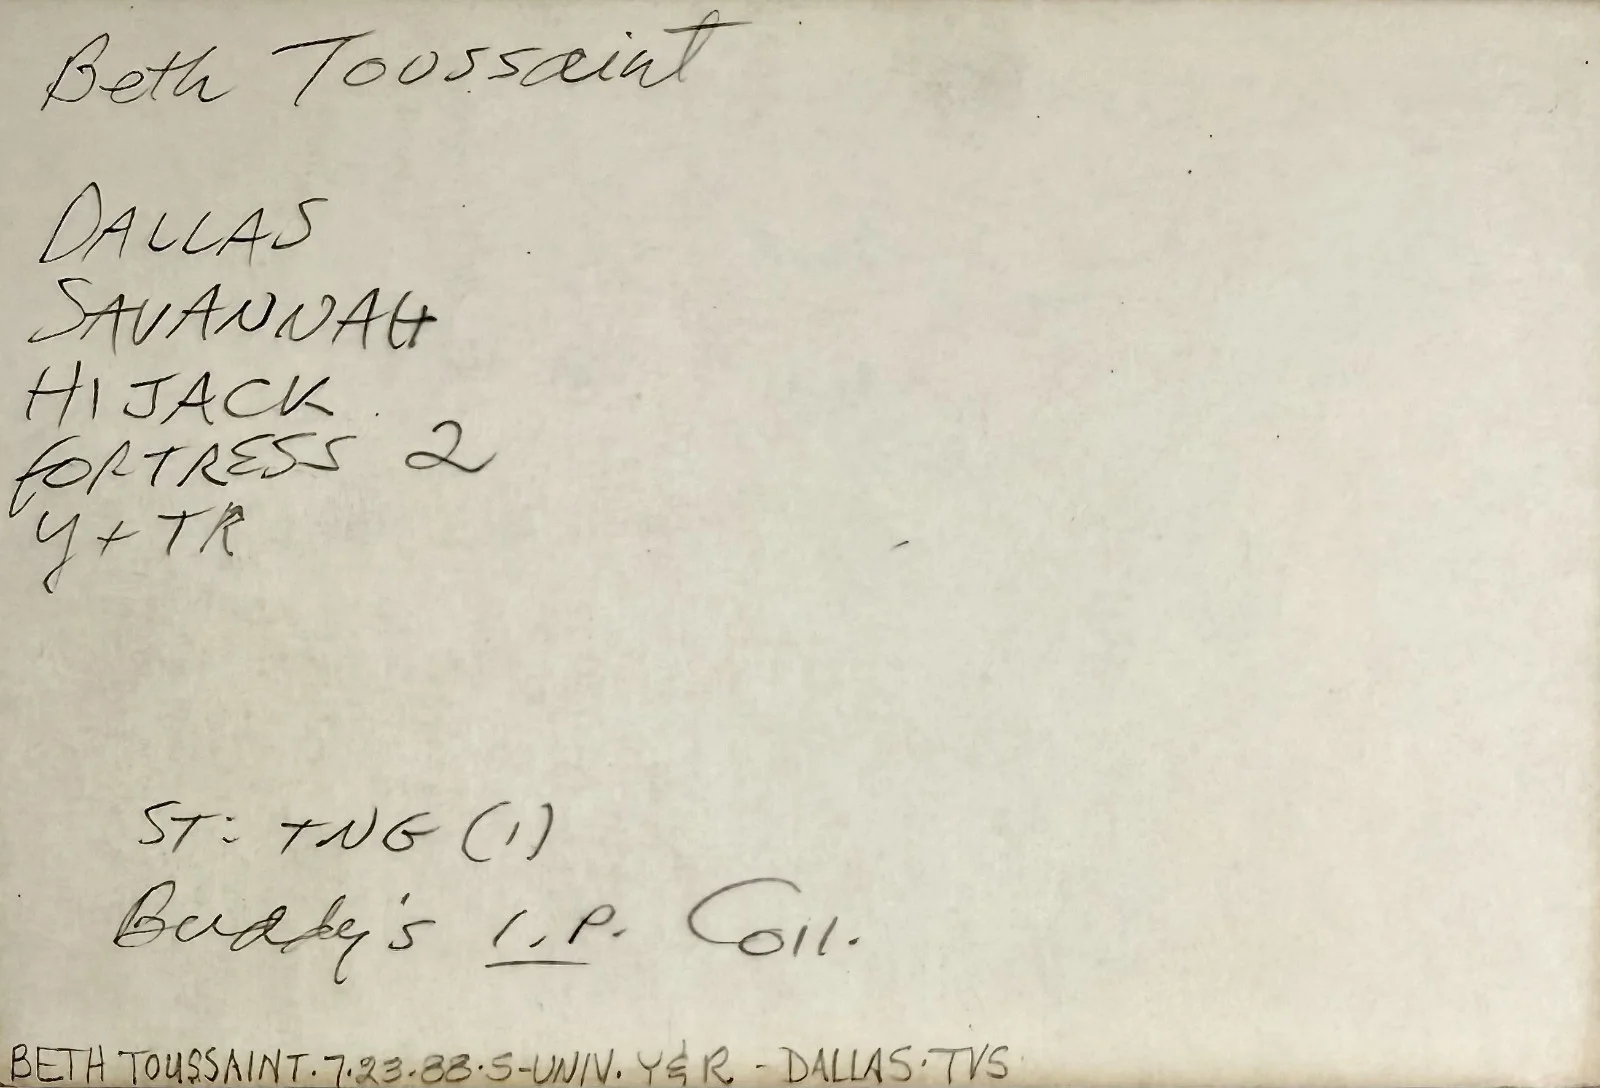 Beth Toussaint
DALLAS
SAVANNAH
HIJACK
FORTRESS 2
Y + TR
ST: TNG (1)
Buddy's I.P. Coll.
BETH TOUSSAINT. 7.23.88.5-UNIV. Y&R - DALLAS. TVS